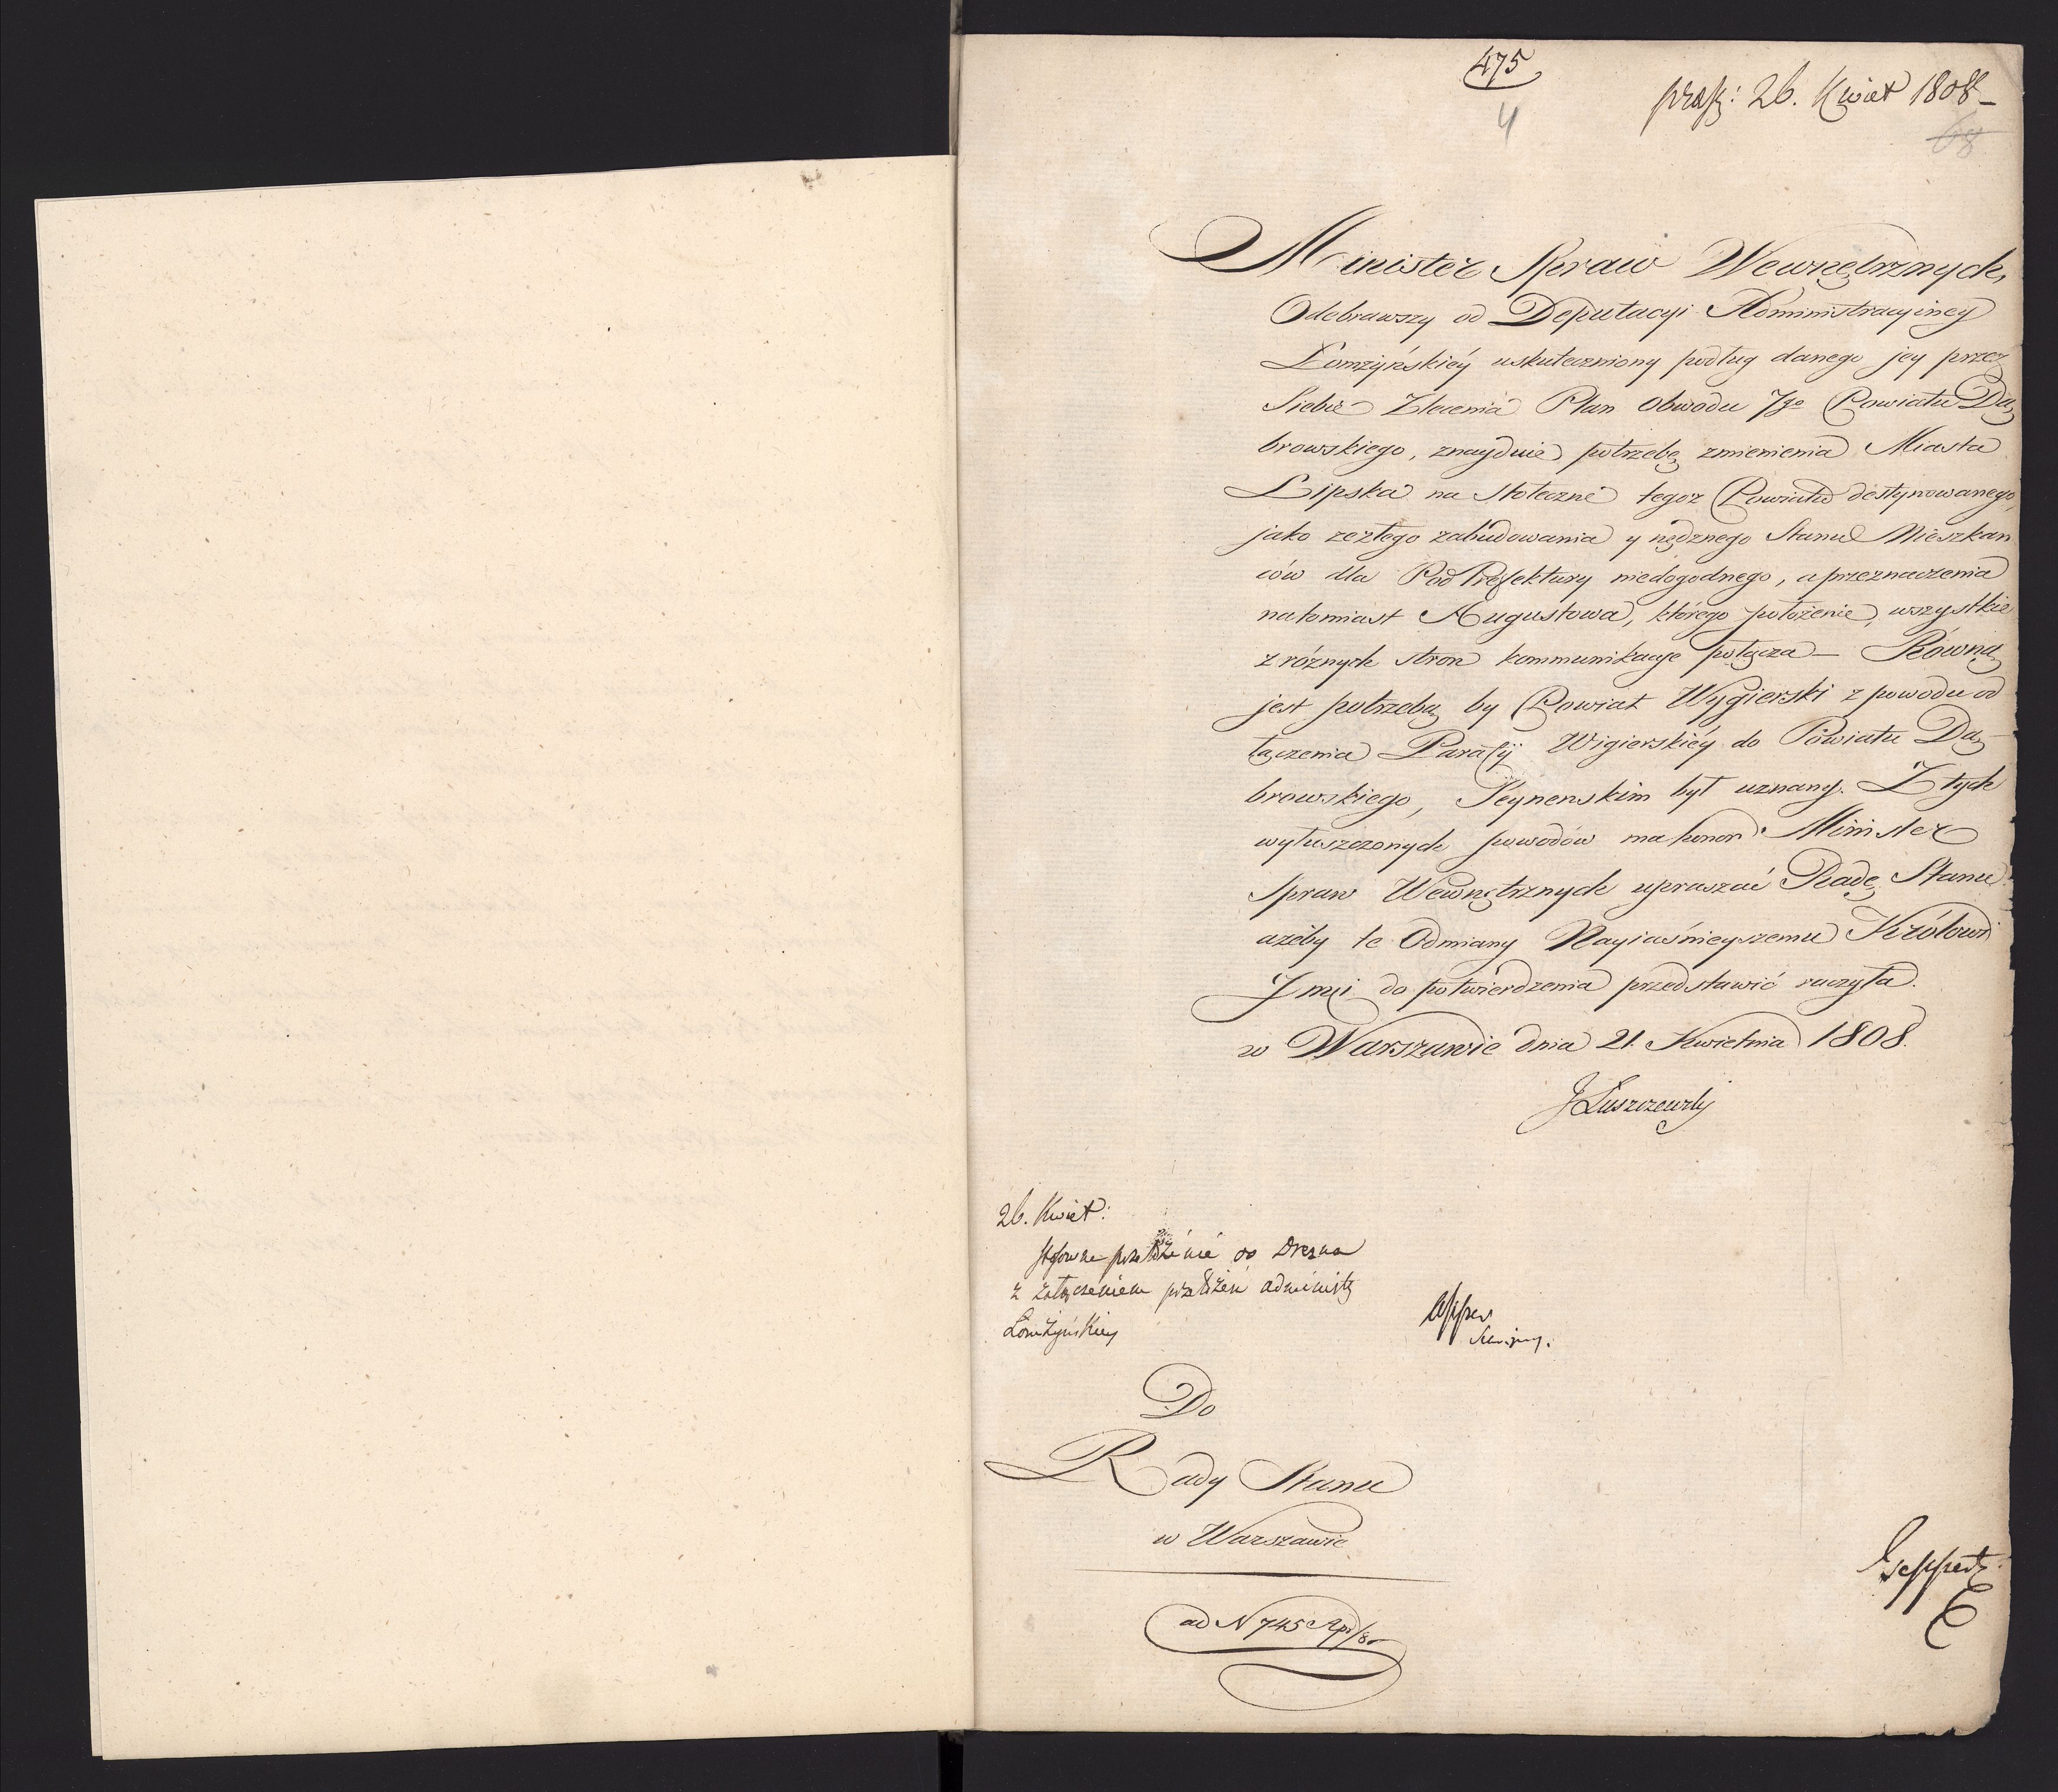 475
praes: 26. Kwiet 1808 –
4
68
Minister Spraw Wewnętrznych,
Odebrawszy od Deputacyi Administracyiney
Łomżyńskiéy uskuteczniony podług danego jey przez
Siebie Zlecenia Plan Obwodu 7go Powiatu Dą
browskiego, znayduie potrzebę zmienienia Miasta
Lipska na stołeczne tegoż Powiatu destynowanego,
jako ze złego zabudowania y nędznego Stanu Mieszkań
ców dla Pod Prefektury niedogodnego, a przeznaczenia
natomiast Augustowa, którego położenie, wszystkie
z różnych stron kommunikacye połącza – Równą
jest potrzebą by Powiat Wygierski z powodu od
łączenia Parafij Wigierskiéy do Powiatu Dą
browskiego, Seynenskim był uznany. Z tych
wyłuszczonych powodów ma honor Minister
Spraw Wewnętrznych upraszać Radę Stanu
ażeby te Odmiany Nayiaśnieyszemu Królowi
Jmći do potwierdzenia przedstawić raczyła.
w Warszawie dnia 21. Kwietnia 1808.
J Łuszczewski
26. Kwiet:
stosowne przełożenie do Drezna
z załączeniem przełożeń administ
Łomżyńskiey
Do
Rady Stanu
w Warszawie
ad N 745 Apr/8
Geppert